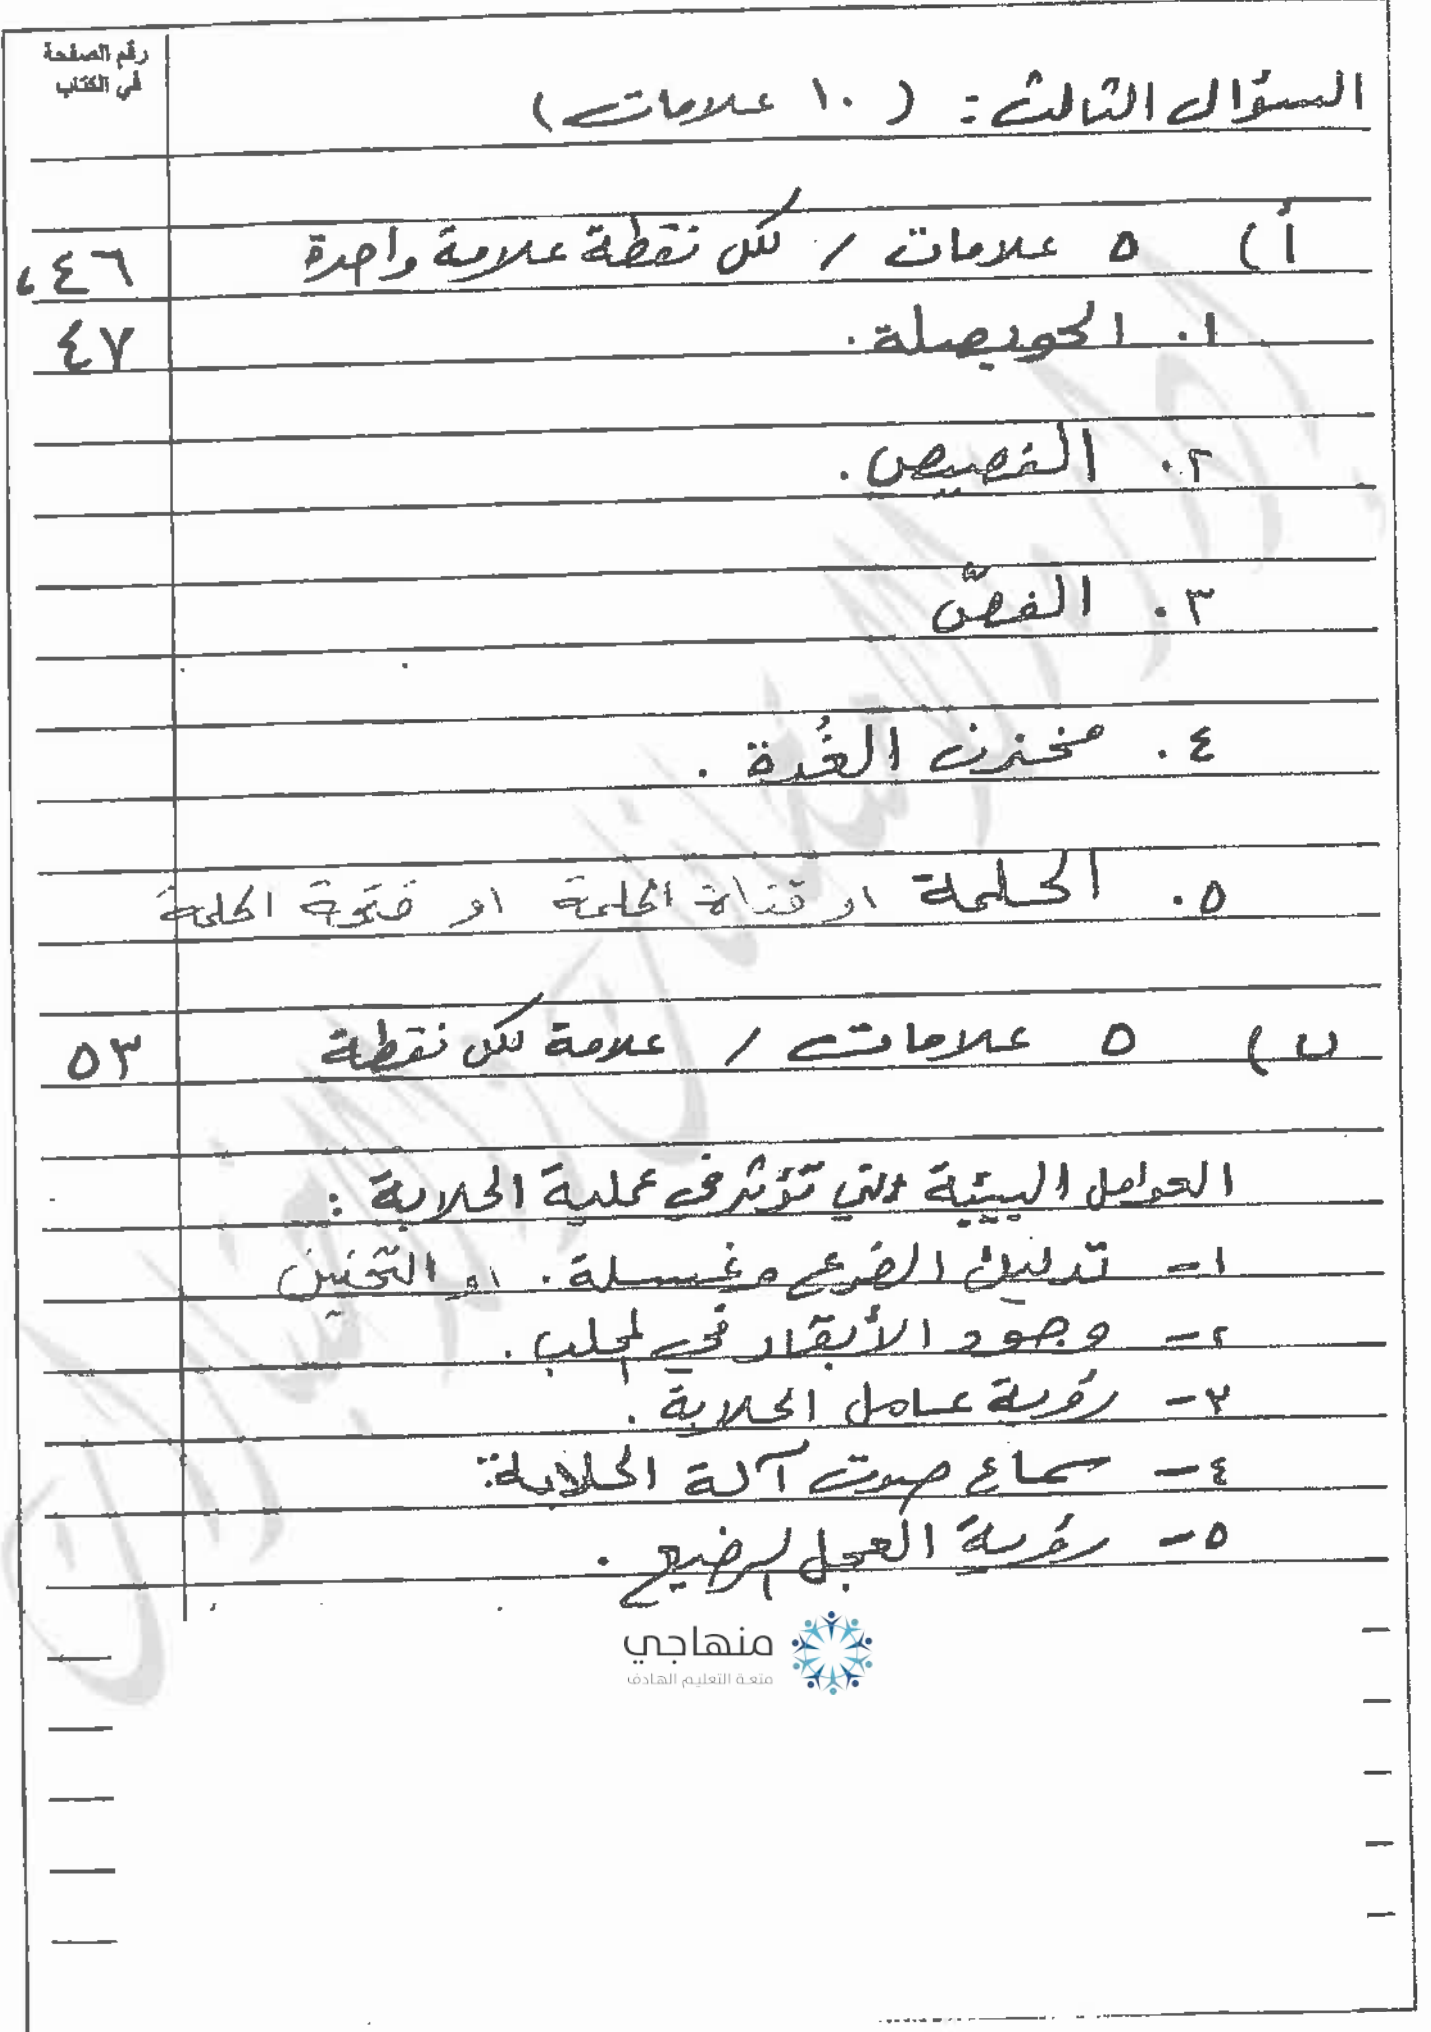 رقم الصفحة
في الكتاب
السؤال الثالث: (١٠ علامات)
أ) ٥ علامات / لكل نقطة علامة واحدة
٤٦،
١. الحويصلة.
٤٧
٢. الفصيص.
٣. الفصّ
٤. مخزن الغُدة.
٥. الحلمة او قناة الحلمة او فتحة الحلمة
ب) ٥ علامات / علامة لكل نقطة
٥٣
العوامل البيئية التي تؤثر في عملية الحلابة:
١- تدليك الضرع وغسله. او التحنين
٢- وجود الأبقار في المحلب.
٣- رؤية عامل الحلابة.
٤- سماع صوت آلة الحلابة.
٥- رؤية العجل الرضيع.
منهاجي
متعة التعليم الهادف